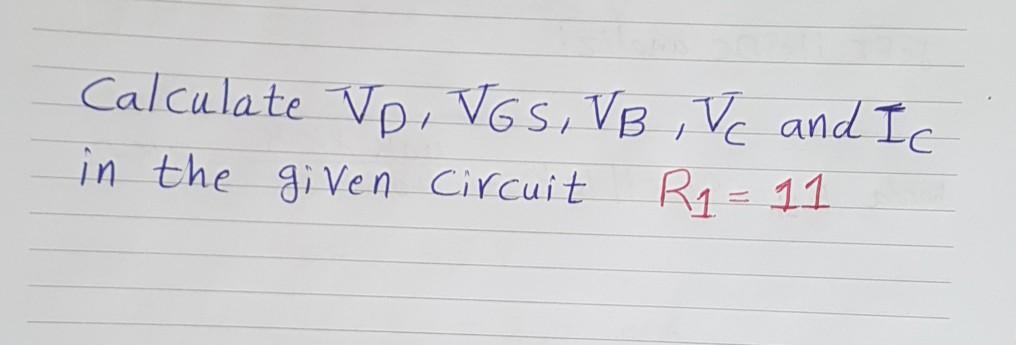 Calculate VD, VGS, VB, VC and IC
in the given circuit R1 = 11